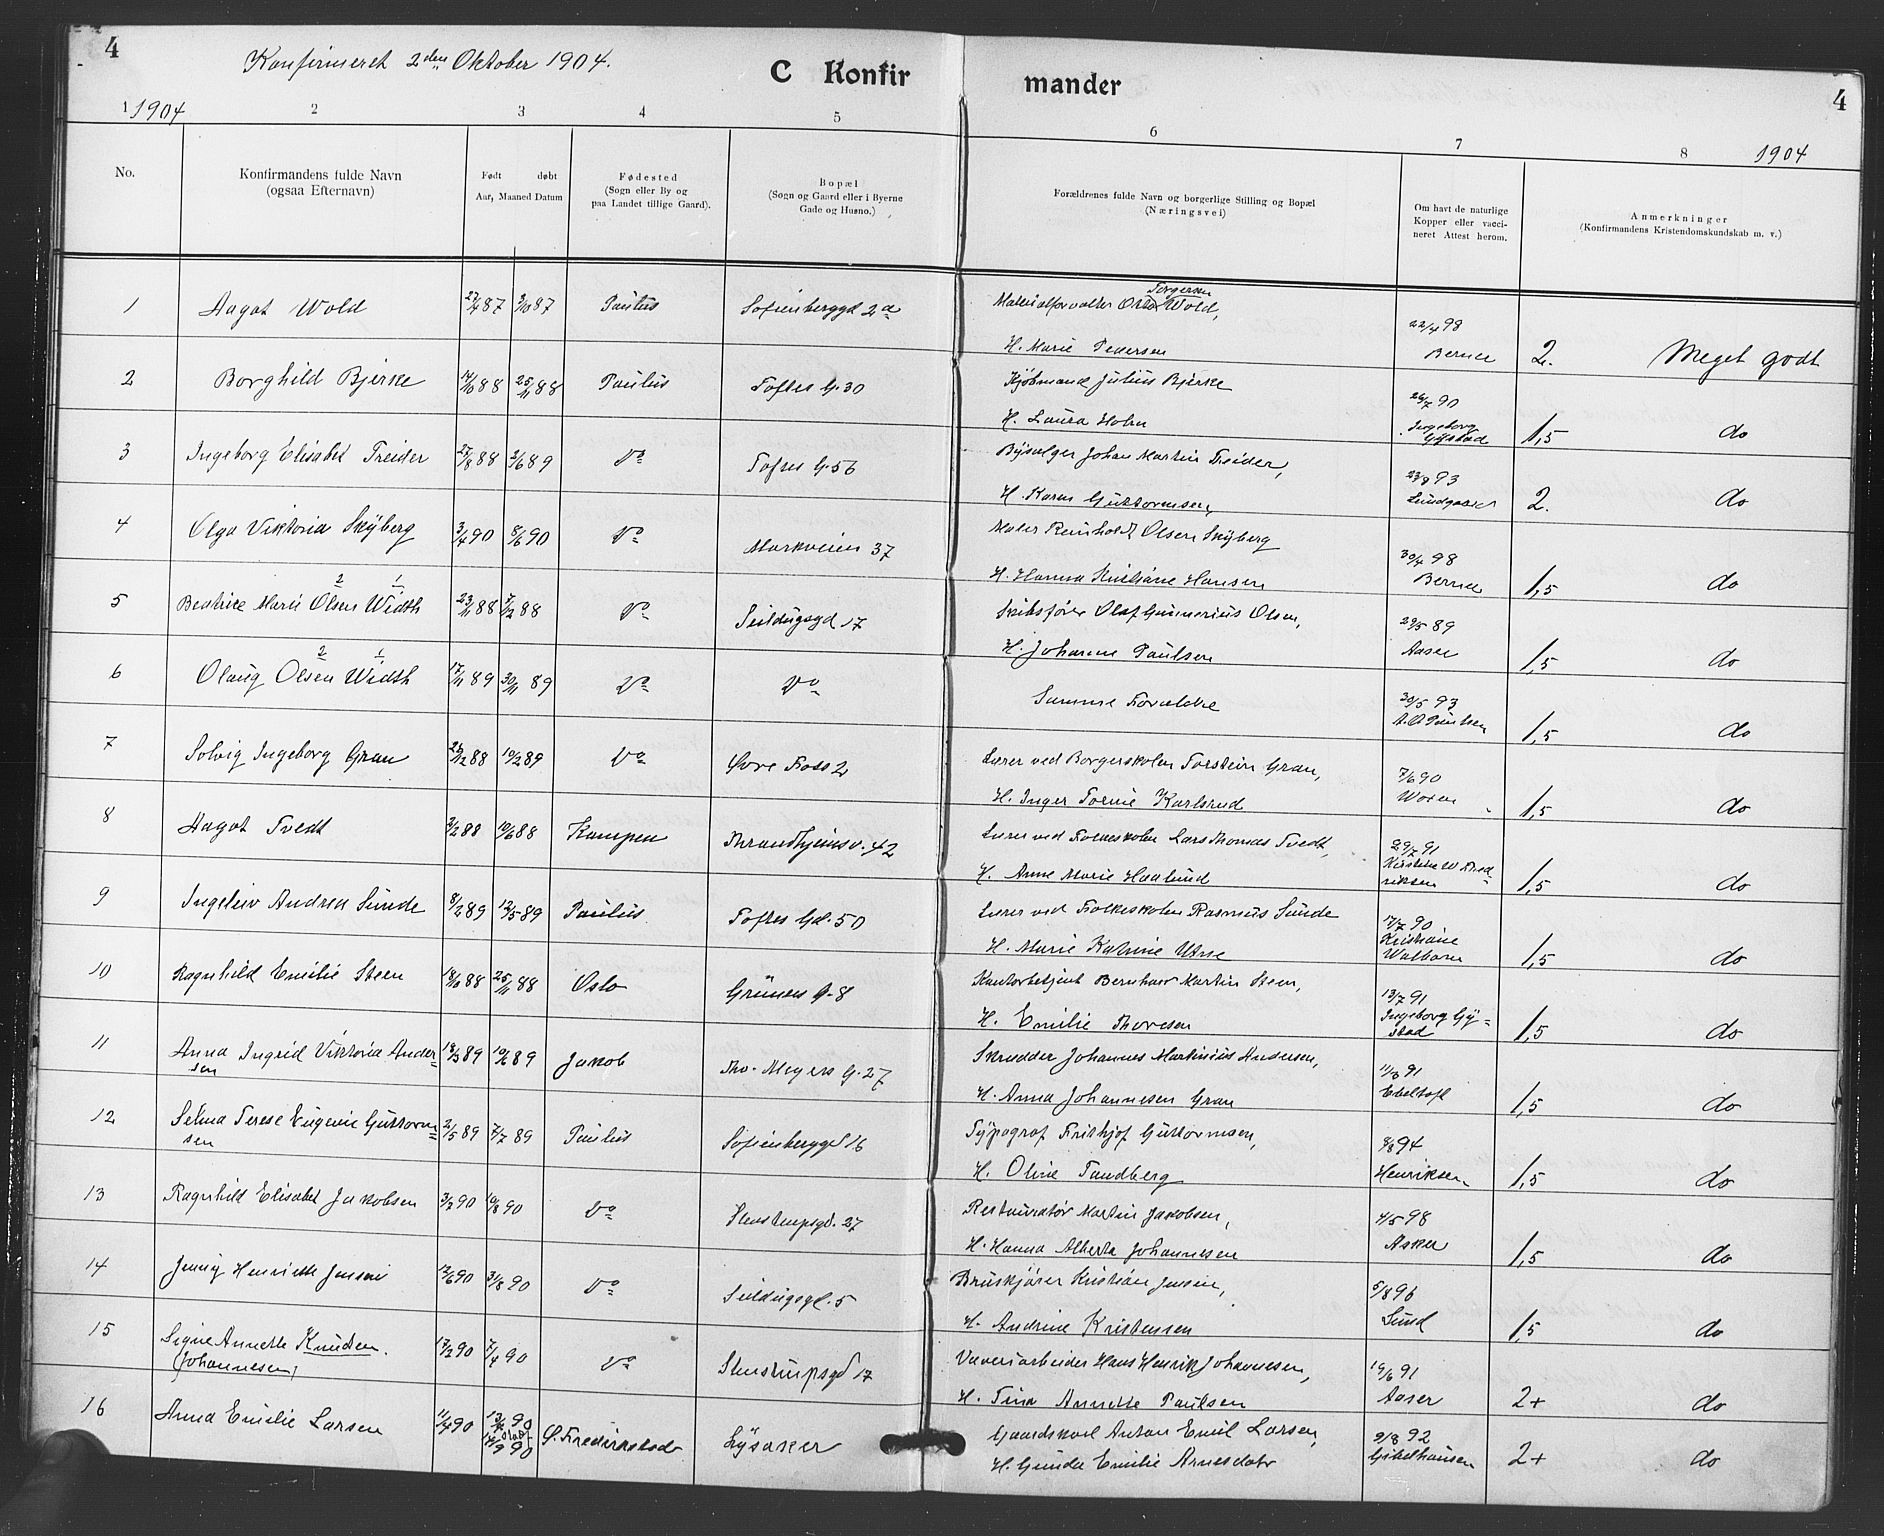 4
Konfirmeret 2den Oktober 1904.
C Konfirmander
4
1 1904 2 3 4 5 6 7 8 1904
No.
Konfirmandens fulde Navn
(ogsaa Efternavn)
Født døbt
Aar, Maaned Datum
Fødested
(Sogn eller By og
paa Landet tillige Gaard).
Bopæl
(Sogn og Gaard eller i Byerne
Gade og Husno.)
Forældrenes fulde Navn og borgerlige Stilling og Bopæl
(Næringsvei)
Om havt de naturlige
Kopper eller vacci-
neret Attest herom.
Anmerkninger
(Konfirmandens Kristendomskundskab m. v.)
1 Aagot Wold 87 3/10 87 Paulus Sofienberggd 2a Materialforvalter Wold, 22/4 98
Torgersen
H. Marie Pedersen 2. Meget godt
2 Borghild Bjerke 14/10 88 25/11 88 Paulus Toftes G. 30 Kjøbmand Julius Bjerke 90
H. Laura Holm Ingeborg Gystad 1,5 do
3 Ingeborg Elisabet Treider 27/8 88 2/6 89 Do Toftes G. 56 Johan Martin Treider, 23/8 93
H. Karen Guttormsen, Lundgaard 2. do
4 Olga Viktoria Skyberg 3/4 90 8/6 90 Do Markveien 37 Maler Reinholdt Olsen Skyberg 30/4 98
H. Hanna Kristiane Hansen 1,5 do
5 Beatrice Marie Olsen Width 23/11 88 88 Do Seildugsgd 17 Skibsfører Olaf Gunnerius Olsen, 29/5 89
2 1
H. Johanne Paulsen 1,5 do
6 Olaug Olsen Width 17/11 89 30/11 89 Do Do Samme Forældre 30/5 93
2 1
1,5 do
7 Solvig Ingeborg Gran 88 10/2 89 Do Øvre Foss 2 Lærer ved Borgerskolen Torstein Gran, 7/6 90
H. Inger Karlsrud 1,5 do
8 Aagot Tvedt 2/2 88 10/6 88 Kampen Throndhjemsv. 42 Lærer ved Folkeskolen Lars Thomas Tvedt, 29/7 91
H. Anne Marie Haalund 1,5 do
9 Ingeleiv Andrea Sunde 8/2 89 12/5 89 Paulus Toftes Gd. 50 Lærer ved Folkeskolen Rasmus Sunde 17/7 90
H. Marie Katrine Kristiane 1,5 do
10 Ragnhild Emilie Steen 18/10 88 25/11 88 Oslo Grüners G. 8 Kontorbetjent Martin Steen, 13/7 91
H. Emilie Thoresen Ingeborg Gy=
stad 1,5 do
11 Anna Ingrid Viktoria Ander=
sen 89 89 Jakob Thv. Meyers G. 27 Skrædder Johannes Martinius Andersen, 11/8 91
H. Anna Johannesen Gran Ebeltoft 1,5 do
12 Selma Terese Eugenie Guttorm=
sen 2/5 89 7/7 89 Paulus Sofienberggd 16 Typograf Frithjof Guttormsen, 94
H. Oline Tandberg Henriksen 1,5 do
13 Ragnhild Elisabet Jakobsen 3/2 90 10/8 90 Do Stenstrupsgd. 27 Restauratør Martin Jakobsen, 4/5 98
H. Hanna Alberta Johannesen Asker 1,5 do
14 Jenny Henriette Jensen 12/6 90 31/8 90 Do Seildugsgd. 5 Bruskjører Kristian Jensen, 5/8 96
H. Andrine Kristensen Lund 1,5 do
15 Signe Annette Knudsen.
(Johannesen) 90 7/4 90 Do Stenstrupsgd 17 Væveriarbeider Hans Henrik Johannesen, 19/6 91
H. Tina Annette Paulsen 2+ do
16 Anna Emilie Larsen 11/4 90 90 Ø. Fredrikstad Lysaker Gaardskarl Anton Emil Larsen, 9/8 92
14/9 90
H. Gunda Emilie Arnesdatr 2+ do